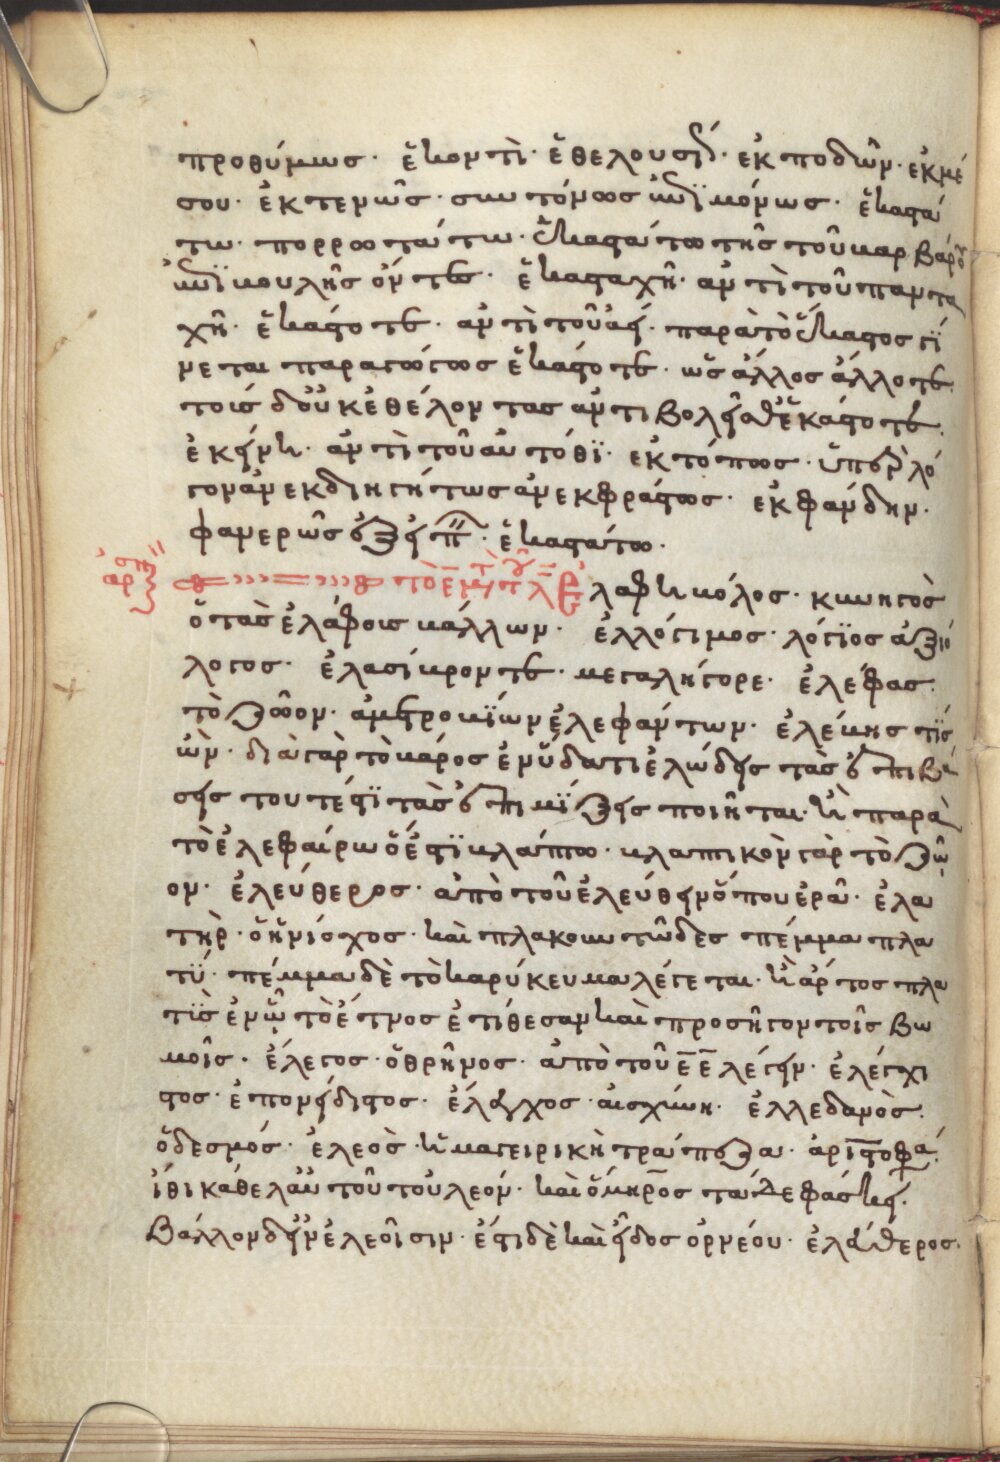 προθύμως· ἑκοντὶ· ἐθελουσί· ἐκποδῶν· ἐκ μέ
σου· ἐκτενῶς· συντόμως καὶ μόνως· ἑκασά
τω· πορρωτάτω· ἑκασάτω τῆς τοῦ καρβάρου
καὶ κουλῆς ὄντες· ἑκασαχῆ· ἀντὶ τοῦ πανταχῆ· ἑκάστοτε· ἀντὶ τοῦ ἀεί· παρὰ τὸ ἕκαστος γί
νεται παραγώγως ἑκάστοτε· ὡς ἄλλος ἄλλοτε·
τοῖς δ' οὐκ ἐθέλοντας ἀντιβολεῖσθ' ἑκάστοτε·
ἐκεῖνη· ἀντὶ τοῦ αὐτόθι· ἐκτόπως· ὑπὲρ λό
γον ἀνεκδιηγήτως ἀνεκφράστως· ἐκφάνδην·
φανερῶς· ἑκαστάτω·
ἀρχὴ τὸ ε μετὰ τοῦ λ Ἐλαφηκόλος· κυνηγὸς
ὁ τὰς ἐλάφοις κάλλων· ἐλλόγιμος· λόγιος ἀξιό
λογος· ἐλασίκροντε· μεγαλήγορε· ἐλέφας·
τὸ ζῶον· ἀμετροκίων ἐλεφάντων· ἐλέκης τίς
ὤν· διὰ γὰρ τὸ κάρος ἐν ὕδατι ἑλώδεις τὰς ἐπιβά
σεις τουτέστι τὰς ἐπιμίξεις ποιῆται· ἢ παρὰ
τὸ ἐλεφαίρω ὅ ἐστι κλάπτω· κλαπτικὸν γὰρ τὸ ζῶ
ον· ἐλεύθερος· ἀπὸ τοῦ ἐλεύθειν ὅπου ἐρᾶ· ἐλα
τὴρ· ὁ ἡνίοχος· καὶ πλακουντῶδες πέμμα πλα
τύ· πέμμα δὲ τὸ καρύκευμα λέγεται· ἢ ἄρτος πλα
τὺς ἐν ᾧ τὸ ἔτνος ἐτίθεσαν καὶ προσῆγον τοῖς βω
μοῖς· ἔλεγος· ὁ θρῆνος· ἀπὸ τοῦ ε ε λέγειν· ἐλέγχι
στος· ἐπονείδιστος· ἔλεγχος· αἰσχύνη· ἐλλεδανὸς·
ὁ δεσμός· ἐλεὸς· ἡ μαγειρικὴ τράπεζα· ἀριστοφά·
ἴθι κάθελ' αὖ τοῦ τουλεόν· καὶ ὅμηρος τάδε φάσκει·
βάλλον δ' εἰν ἐλεοῖσιν· ἔστι δὲ καὶ εἶδος ὀρνέου· ἐλεύθερος·